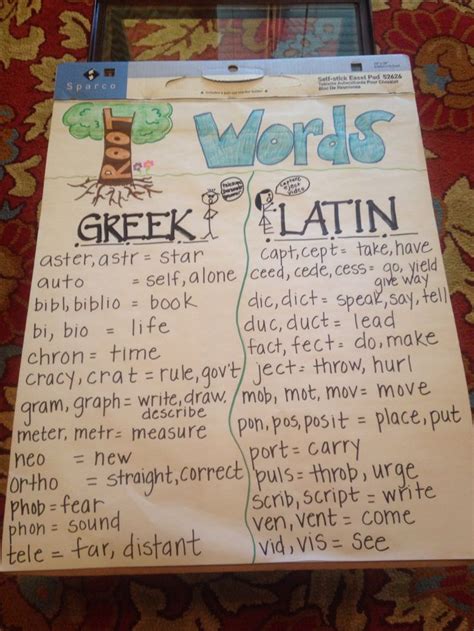 Sparco
Self-stick Easel Pad 52626
ROOT
Words
GREEK
aster, astr = star
auto = self, alone
bibl, biblio = book
bi, bio = life
chron = time
cracy, crat = rule, gov't
gram, graph = write, draw, describe
meter, metr = measure
neo = new
ortho = straight, correct
phob = fear
phon = sound
tele = far, distant
LATIN
capt, cept = take, have
ceed, cede, cess = go, yield
give way
dic, dict = speak, say, tell
duc, duct = lead
fact, fect = do, make
ject = throw, hurl
mob, mot, mov = move
pon, pos, posit = place, put
port = carry
puls = throb, urge
scrib, script = write
ven, vent = come
vid, vis = see